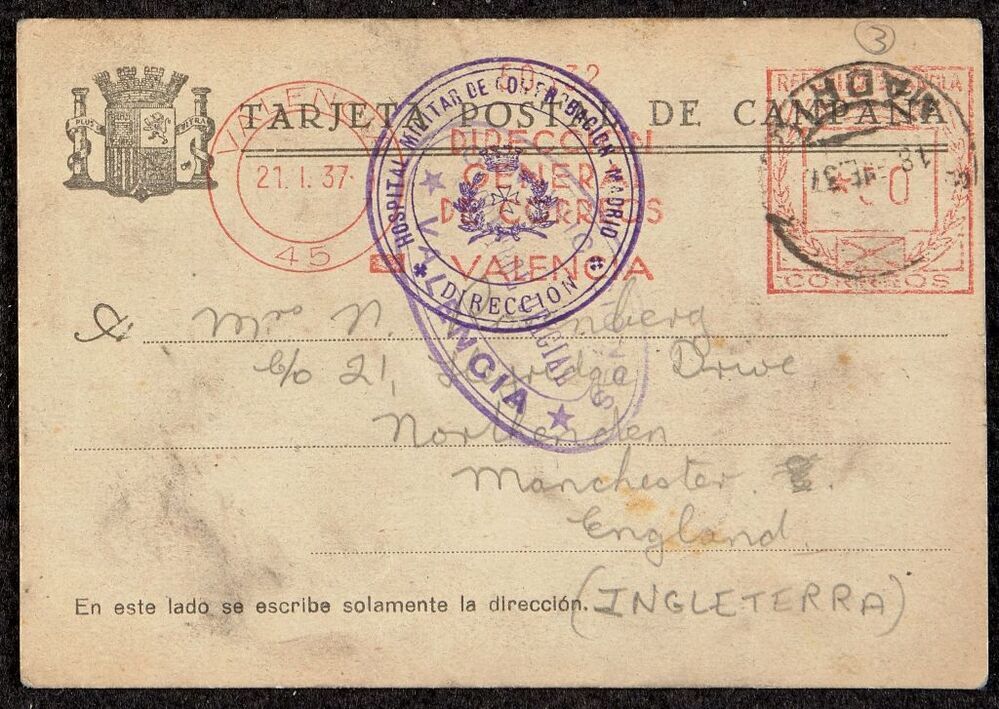 3
TARJETA POSTAL DE CAMPAÑA
PLUS VLTRA
VALENCIA
21. I. 37
45
DIRECCION
GENERAL
DE CORREOS
VALENCIA
REPUBLICA ESPAÑOLA
CORREOS
MADRID
18
HOSPITAL MILITAR DE CONCENTRACION-MADRID
DIRECCION
VALENCIA
D.
Mrs N.
c/o 21, Drive
Northenden
Manchester.
England.
(INGLETERRA)
En este lado se escribe solamente la dirección.